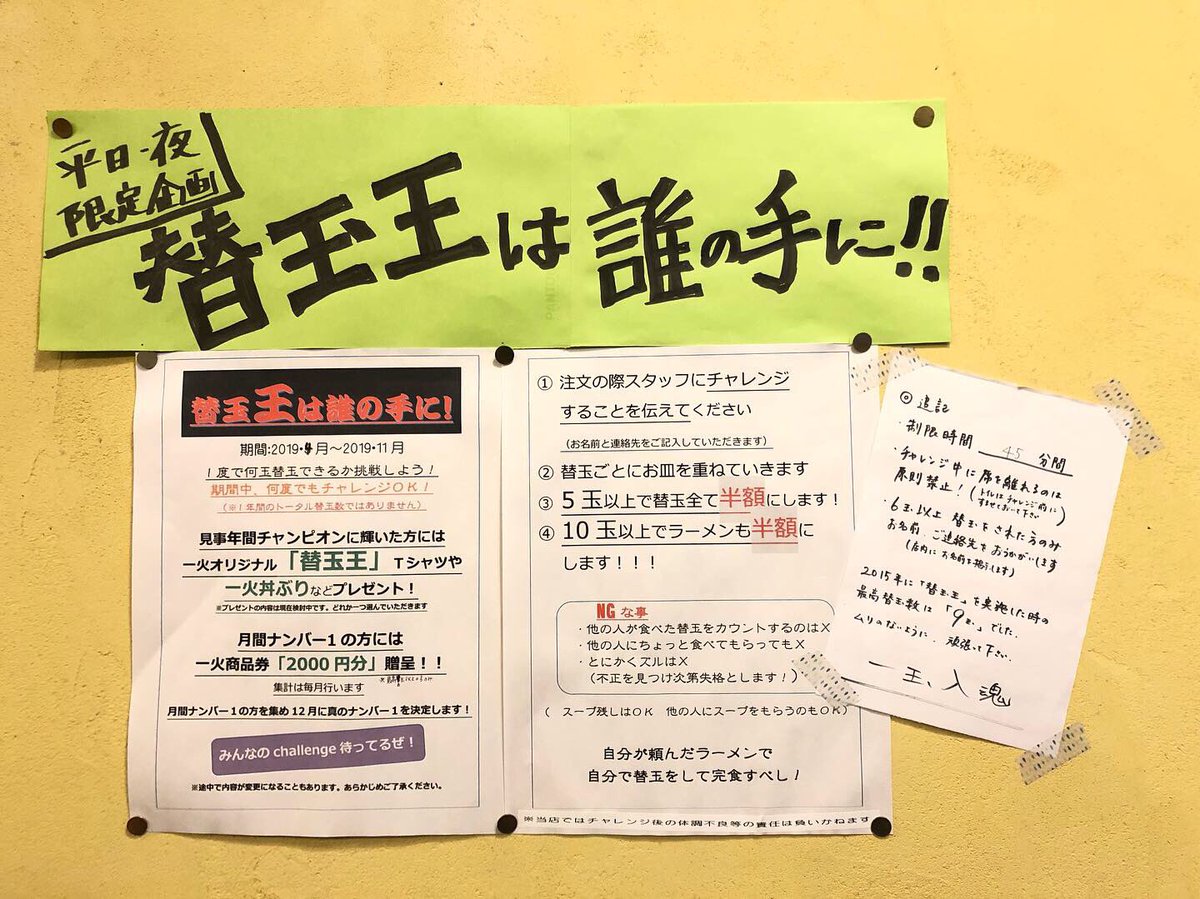 平日・夜
限定企画
替玉王は誰の手に!!
替玉王は誰の手に!
期間:2019・4月～2019・11月
1度で何玉替玉できるか挑戦しよう!
期間中、何度でもチャレンジOK!
(※1年間のトータル替玉数ではありません)
見事年間チャンピオンに輝いた方には
一火オリジナル「替玉王」Tシャツや
一火丼ぶりなどプレゼント!
※プレゼントの内容は現在検討中です。どれか一つ選んでいただきます
月間ナンバー1の方には
一火商品券「2000円分」贈呈!!
集計は毎月行います
月間ナンバー1の方を集め12月に真のナンバー1を決定します!
みんなのchallenge待ってるぜ!
※途中で内容が変更になることもあります。あらかじめご了承ください。
① 注文の際スタッフにチャレンジ
することを伝えてください
(お名前と連絡先をご記入していただきます)
② 替玉ごとにお皿を重ねていきます
③ 5玉以上で替玉全て半額にします!
④ 10玉以上でラーメンも半額に
します!!!
NGな事
・他の人が食べた替玉をカウントするのは✕
・他の人にちょっと食べてもらっても✕
・とにかくズルは✕
(不正を見つけ次第失格とします!)
( スープ残しはOK 他の人にスープをもらうのもOK)
自分が頼んだラーメンで
自分で替玉をして完食すべし!
※当店ではチャレンジ後の体調不良等の責任は負いかねます
◎ 追記
・制限時間 45 分間
・チャレンジ中に席を離れるのは
原則禁止!(トイレはチャレンジ前に
すませておいて下さい)
・6玉以上替玉をされた方のみ
お名前、ご連絡先をおうかがいします
(店内にお名前を掲示します)
2015年に「替玉王」を実施した時の
最高替玉数は「9玉」でした。
ムリのないように、頑張って下さい。
一玉入魂